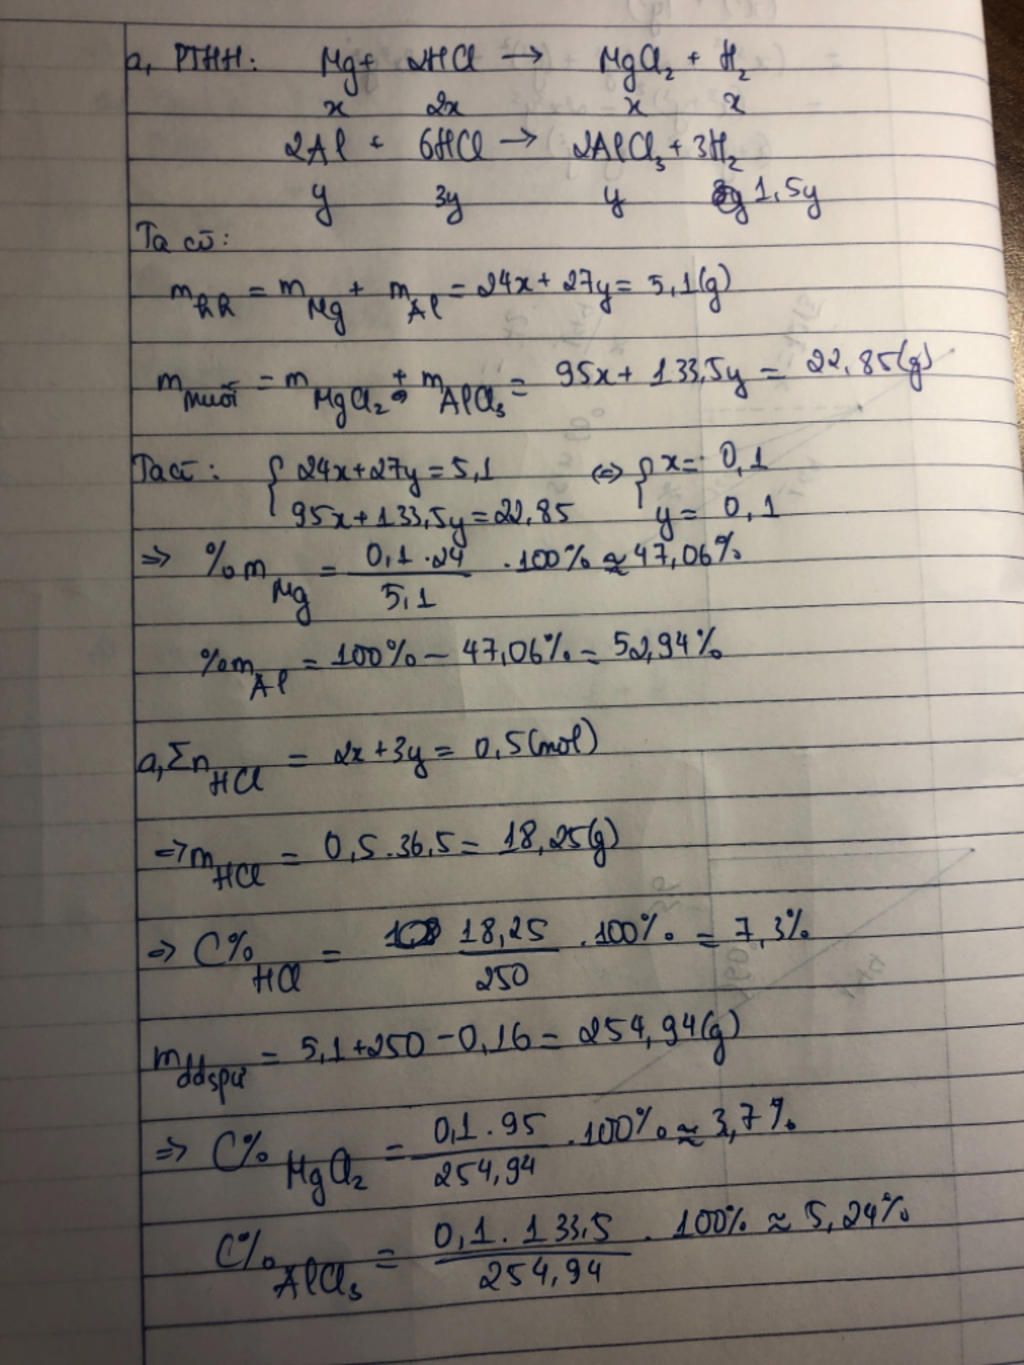 a, PTHH: Mg + 2HCl → MgCl₂ + H₂
x 2x x x
2Al + 6HCl → 2AlCl₃ + 3H₂
y 3y y 1,5y
Ta có:
m_RR = m_Mg + m_Al = 24x + 27y = 5,1(g)
m_muối = m_MgCl₂ + m_AlCl₃ = 95x + 133,5y = 22,85(g)
Ta có: { 24x+27y = 5,1 ⇔ { x = 0,1
95x+133,5y = 22,85 y = 0,1
⇒ %m_Mg = 0,1 . 24 / 5,1 . 100% ≈ 47,06%
%m_Al = 100% − 47,06% = 52,94%
a, Σn_HCl = 2x + 3y = 0,5 (mol)
⇒ m_HCl = 0,5 . 36,5 = 18,25(g)
⇒ C%_HCl = 18,25 / 250 . 100% = 7,3%
m_ddspư = 5,1 + 250 − 0,16 = 254,94(g)
⇒ C%_MgCl₂ = 0,1 . 95 / 254,94 . 100% ≈ 3,7%
C%_AlCl₃ = 0,1 . 133,5 / 254,94 . 100% ≈ 5,24%